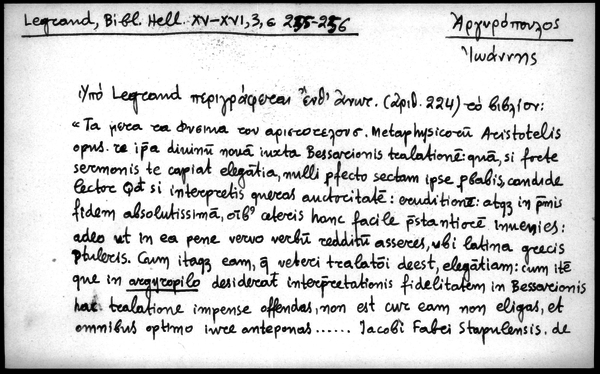 Legrand, Bibl. Hell. XV–XVI, 3, σ 235-236
Ἀργυρόπουλος
Ἰωάννης
Ὑπό Legrand περιγράφεται ἔνθ' ἄνωτ. (ἀριθ. 224) τό βιβλίον:
"Τα μετα τα Φυσικα του αριστοτελουσ. Metaphysicorū Aristotelis
opus. re ip̄a divinū novā iuxta Bessarionis tralationē: quā, si forte
sermonis te capiat elegātia, nulli pfecto sectam ipse pbabis, candide
lector Qd̄ si interpretis queras auctoritatē: eruditionē: atqz in pmis
fidem absolutissimā, oīb' ceteris hanc facile p̄stantiorē invenies:
adeo ut in ea pene vervo verbū redditū asseres, ubi latina grecis
ptuleris. Cum itaqz eam, q̄ veteri tralatōi deest, elegātiam: cum itē
que in argyropilo desiderat̄ interpretationis fidelitatem in Bessarionis
hac tralatione impense offendas, non est cur eam non eligas, et
omnibus optimo iure anteponas ...... Iacobi Fabri Stapulensis. de